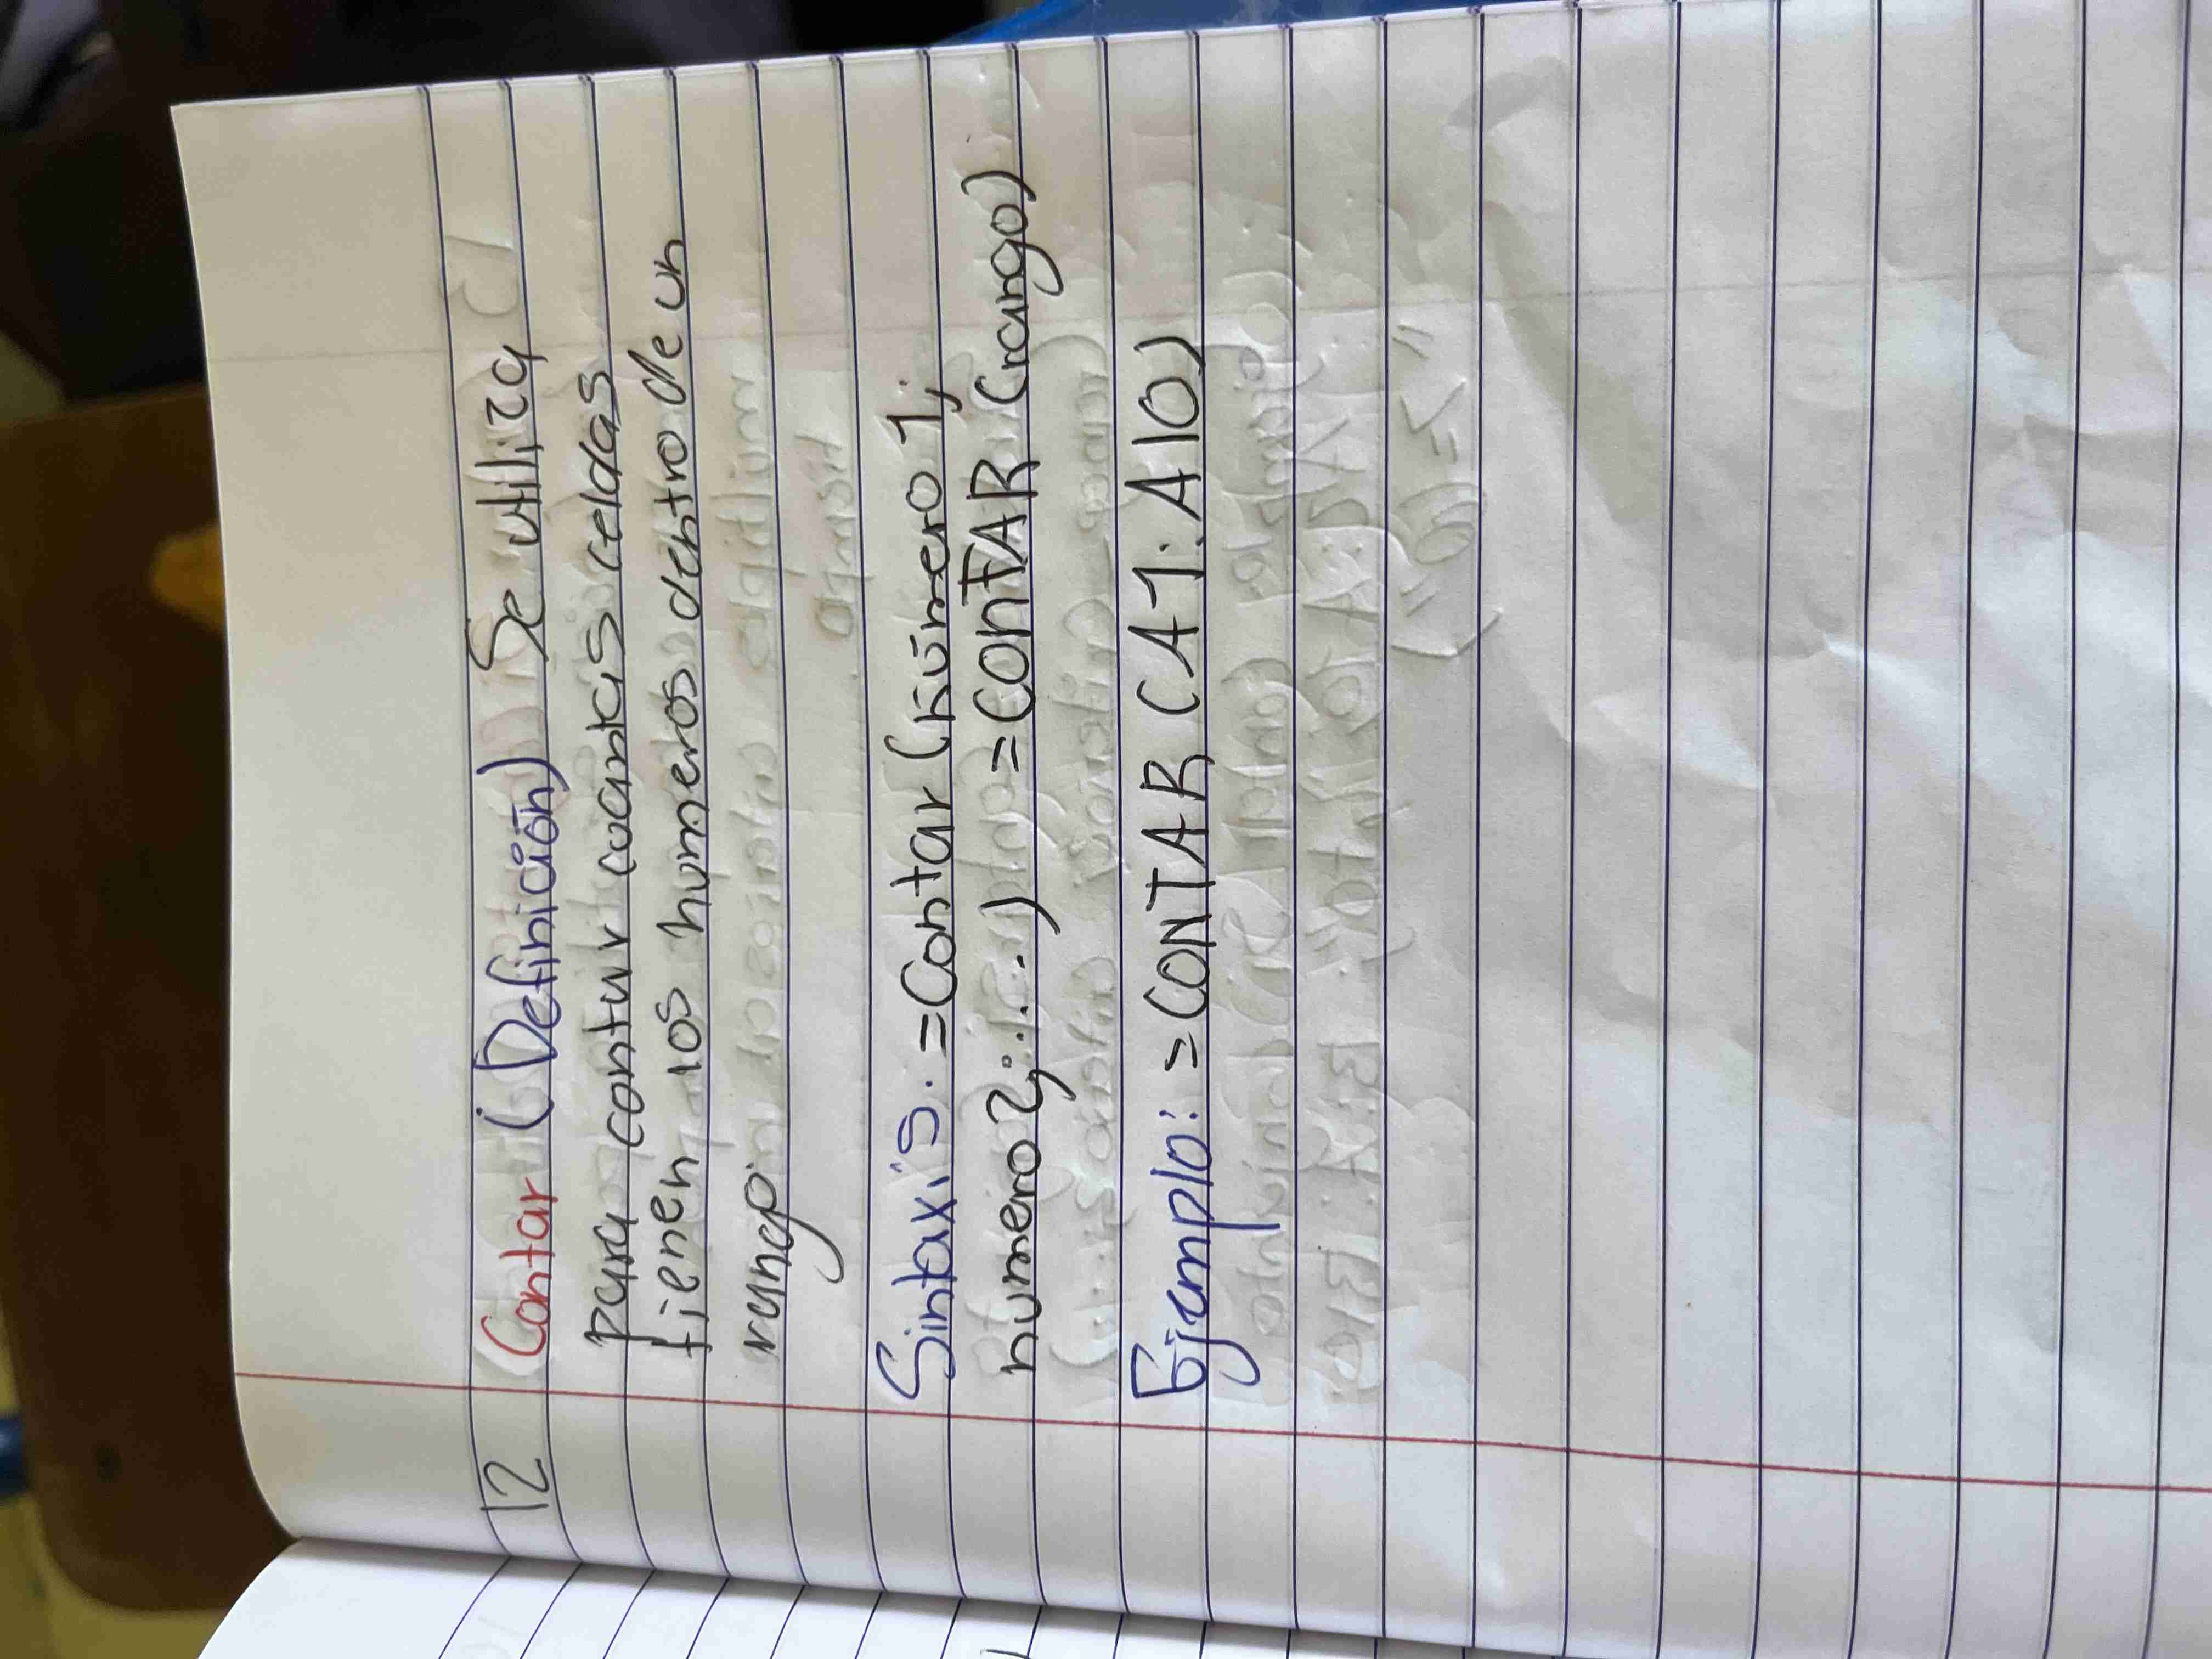 12 Contar (Definición) Se utiliza
para contar cuantas celdas
tienen los numeros dentro de un
rango
Sintaxis. =Contar (número 1;
numero 2; ...) =CONTAR (rango)
Ejemplo: =CONTAR (A1:A10)